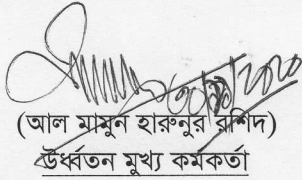 (আল মামুন হারুনুর রশিদ)
উর্ধ্বতন মুখ্য কর্মকর্তা